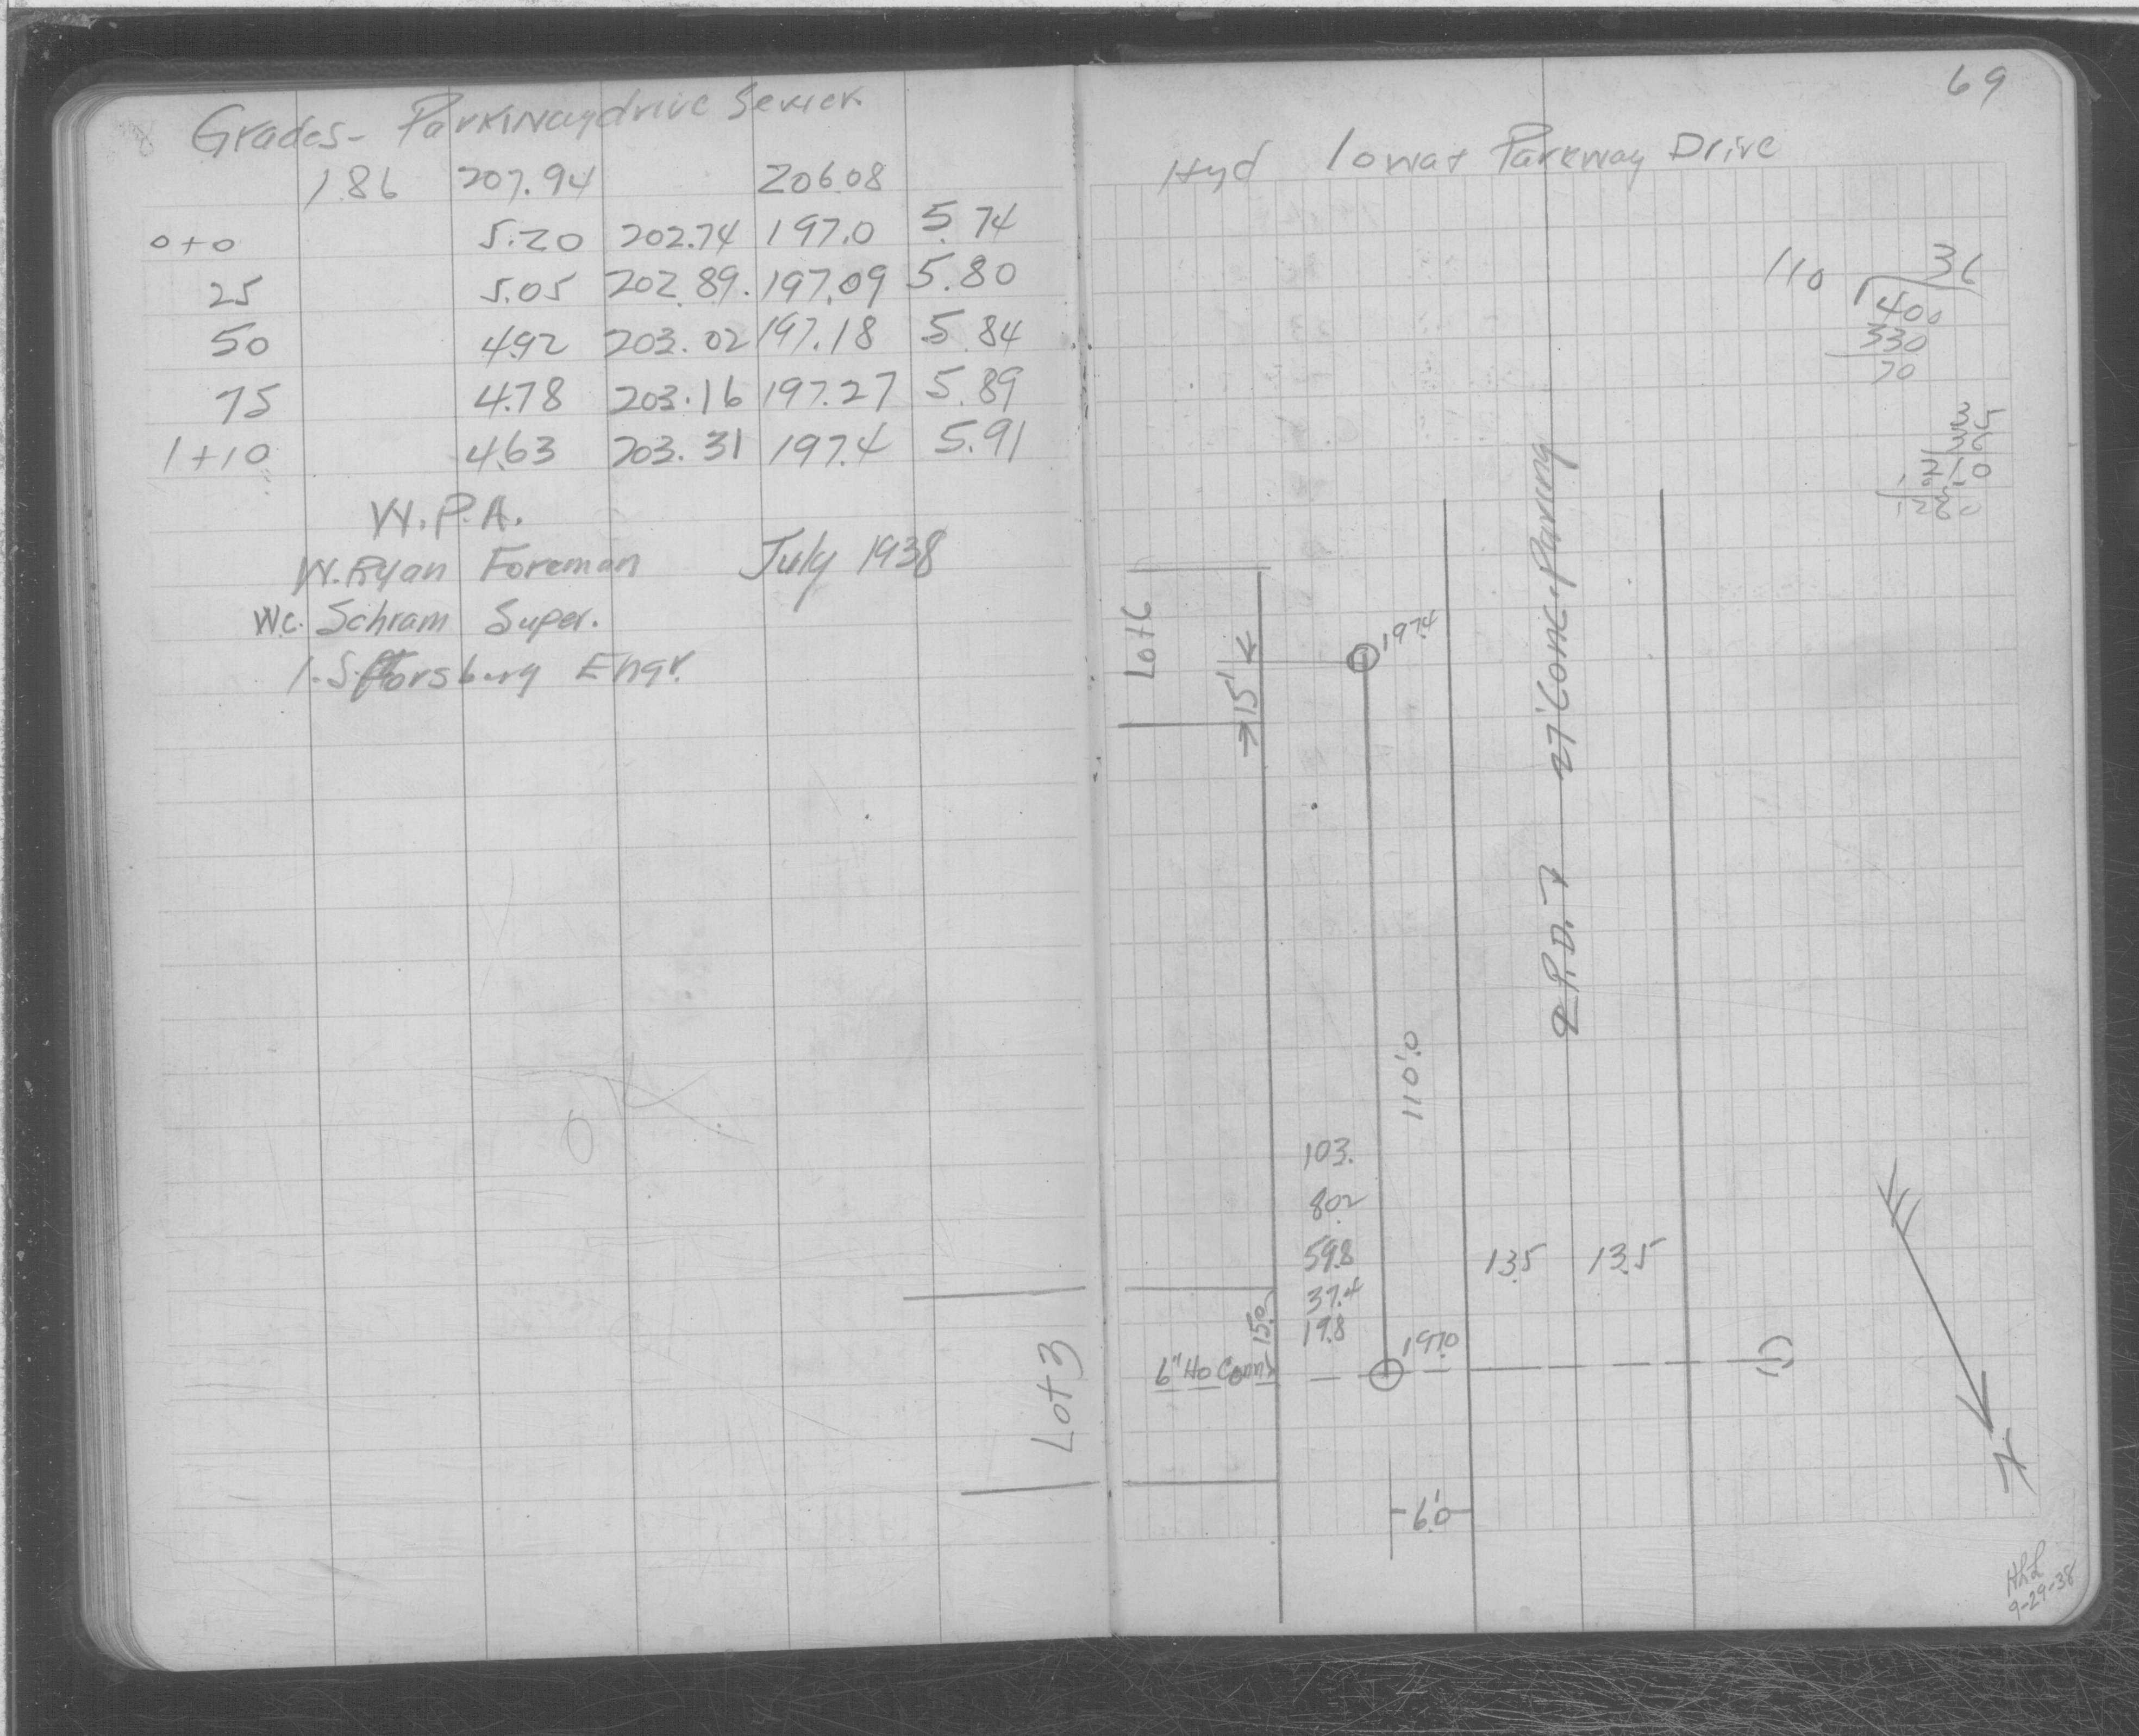 Grades- Parkway drive Sewer
1.86 207.94 206.08
0+0 5.20 202.74 197.0 5.74
25 5.05 202.89. 197.09 5.80
50 4.92 203.02 197.18 5.84
75 4.78 203.16 197.27 5.89
1+10 4.63 203.31 197.4 5.91
W.P.A.
W. Ryan Foreman July 1938
W.C. Schram Super.
Engr.
Lot 3
69
Hyd Iowa + Parkway Drive
110 36
400
330
70
210
Lot 6
15'
197.4
27' Conc. Paving
P.D.
110'.0
103.
80.2
59.8
37.4
19.8
13.5 13.5
15.0
197.0
6" Ho Conn
6'.0
9-29-38